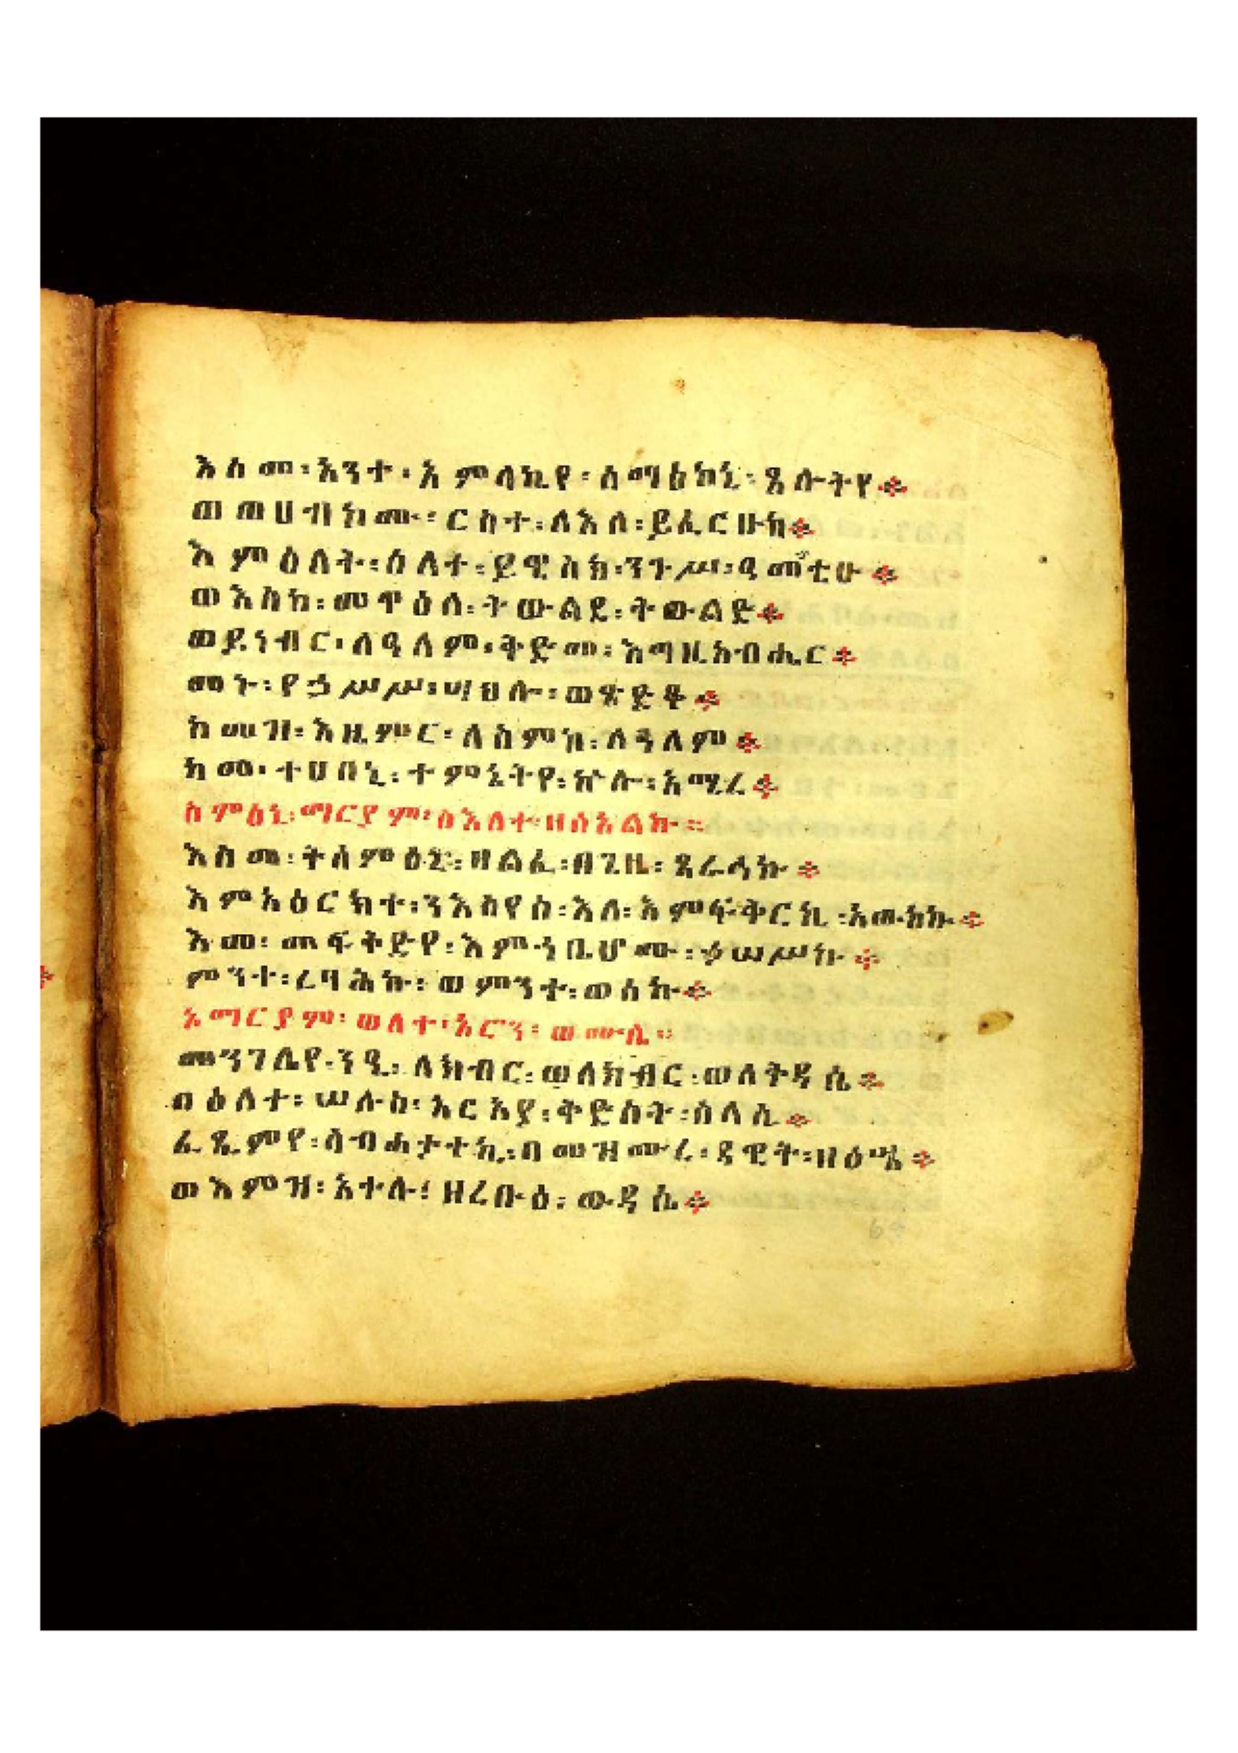 እስመ፡ አንተ፡ አምላኪየ፡ ሰማዕኮኒ፡ ጸሎትየ።
ወወሀብኮሙ፡ ርስተ፡ ለእለ፡ ይፈርሁከ።
እምዕለት፡ ዕለተ፡ ይዌስክ፡ ንጉሥ፡ ዓመቲሁ።
ወእስከ፡ መዋዕለ፡ ትውልደ፡ ትውልድ።
ወይነብር፡ ለዓለም፡ ቅድመ፡ እግዚአብሔር።
መኑ፡ የኃሥሥ፡ ሣህሉ፡ ወጽድቆ።
ከመዝ፡ እዜምር፡ ለስምከ፡ ለዓለም።
ከመ፡ ተሀበኒ፡ ተምኔትየ፡ ኵሉ፡ አሚረ።
ስምዕኒ፡ ማርያም፡ ስእለተ፡ ዘሰአልኩ።
እስመ፡ ትሰምዕኒ፡ ዘልፈ፡ በጊዜ፡ ጸራኅኩ።
እምአዕርክተ፡ ንእስየሰ፡ እለ፡ እምፍቅርኪ፡ አውከኩ።
እመ፡ መፍቅድየ፡ እምኀቤሆሙ፡ ኃሠሥኩ።
ምንተ፡ ረባሕኩ፡ ወምንተ፡ ወሰኩ።
ኦማርያም፡ ወለተ፡ አሮን፡ ወሙሴ።
መንገሌየ፡ ንዒ፡ ለክብር፡ ወለክብር፡ ወለቅዳሴ።
በዕለተ፡ ሠሉስ፡ አርአያ፡ ቅድስት፡ ስላሴ።
ፈጺምየ፡ ስብሐታተኪ፡ በመዝሙረ፡ ዳዊት፡ ዘዕሤ።
ወእምዝ፡ አተሉ፡ ዘረቡዕ፡ ውዳሴ።